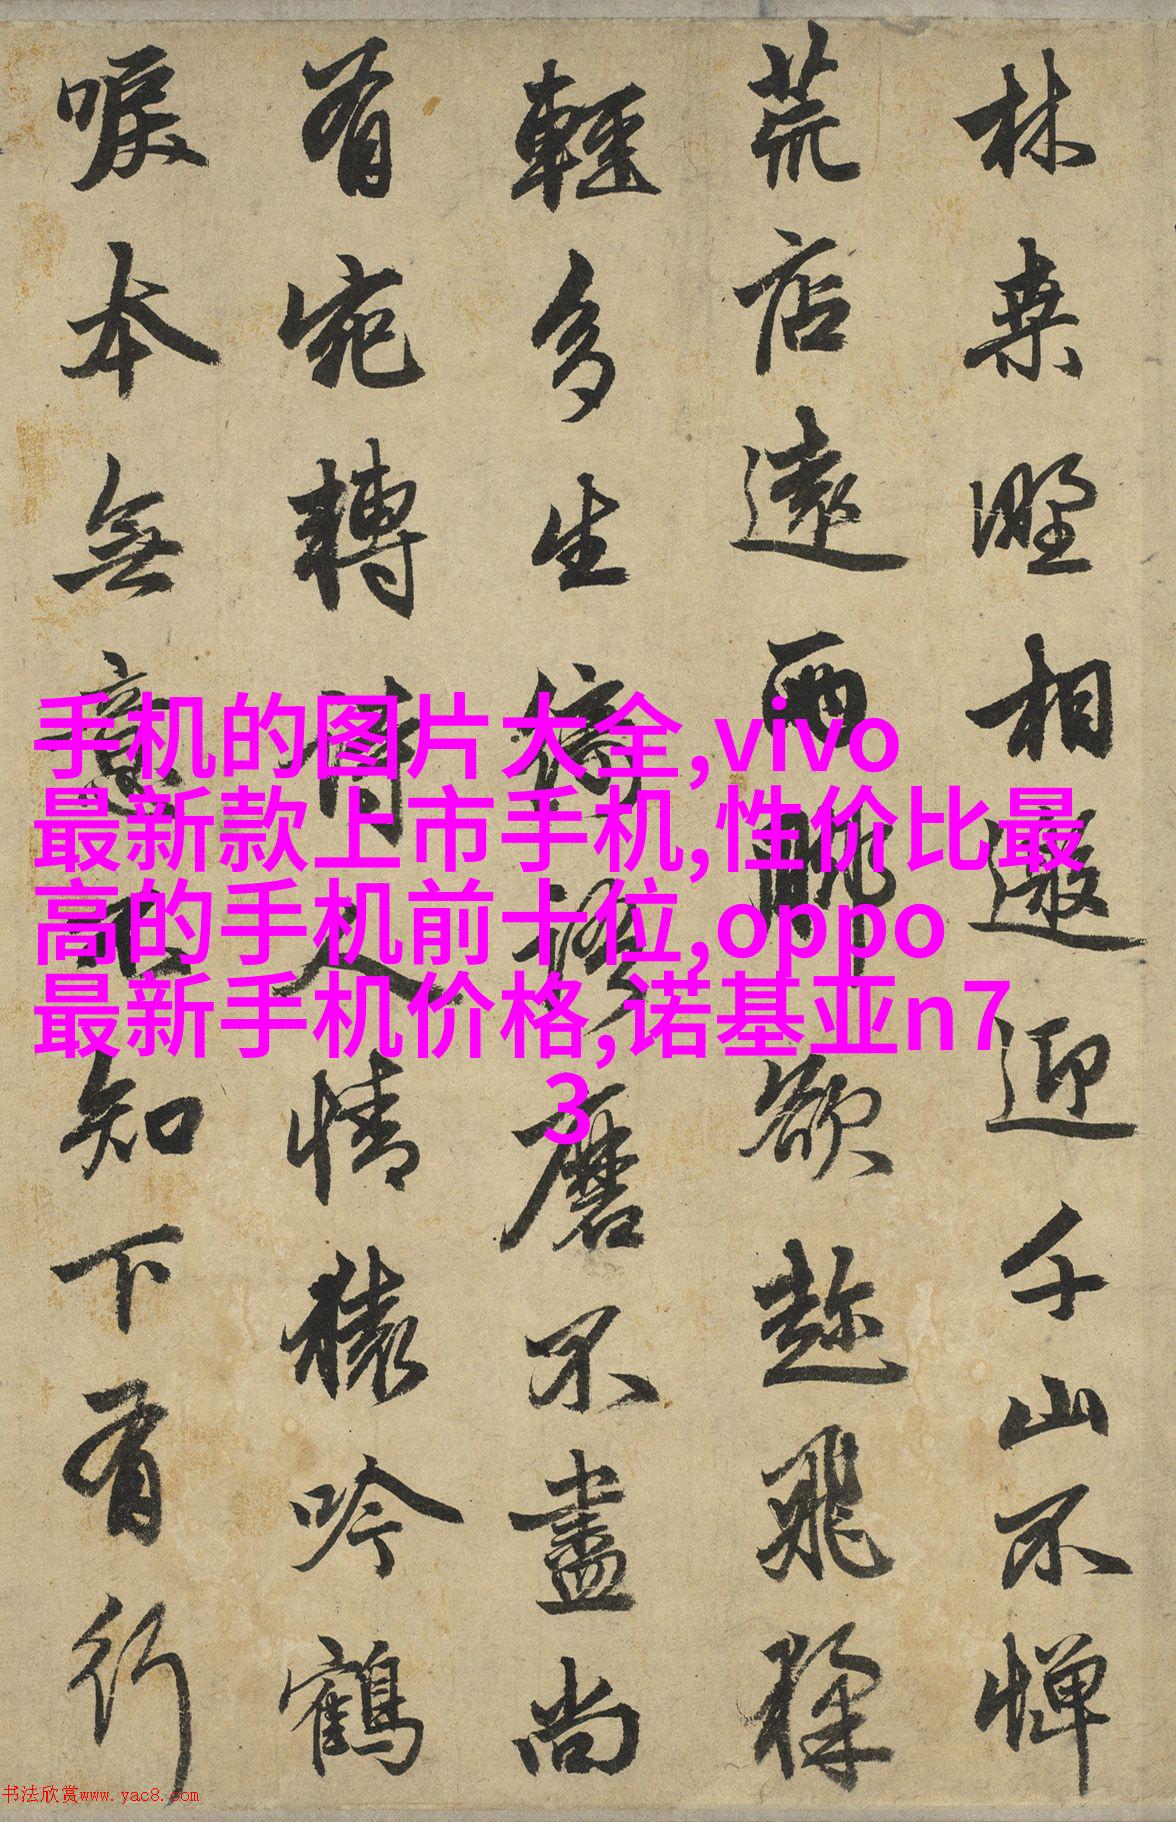 林桒野相邀迎千山不惮
荒店遠兩腳欲趂飛猱
輕多生綺語磨不盡尚
有宛轉詩人情猿吟鶴
唳本無意不知下有行
手机的图片大全,vivo
最新款上市手机,性价比最
高的手机前十位,oppo
最新手机价格,诺基亚n7
3
书法欣赏www.yac8.com